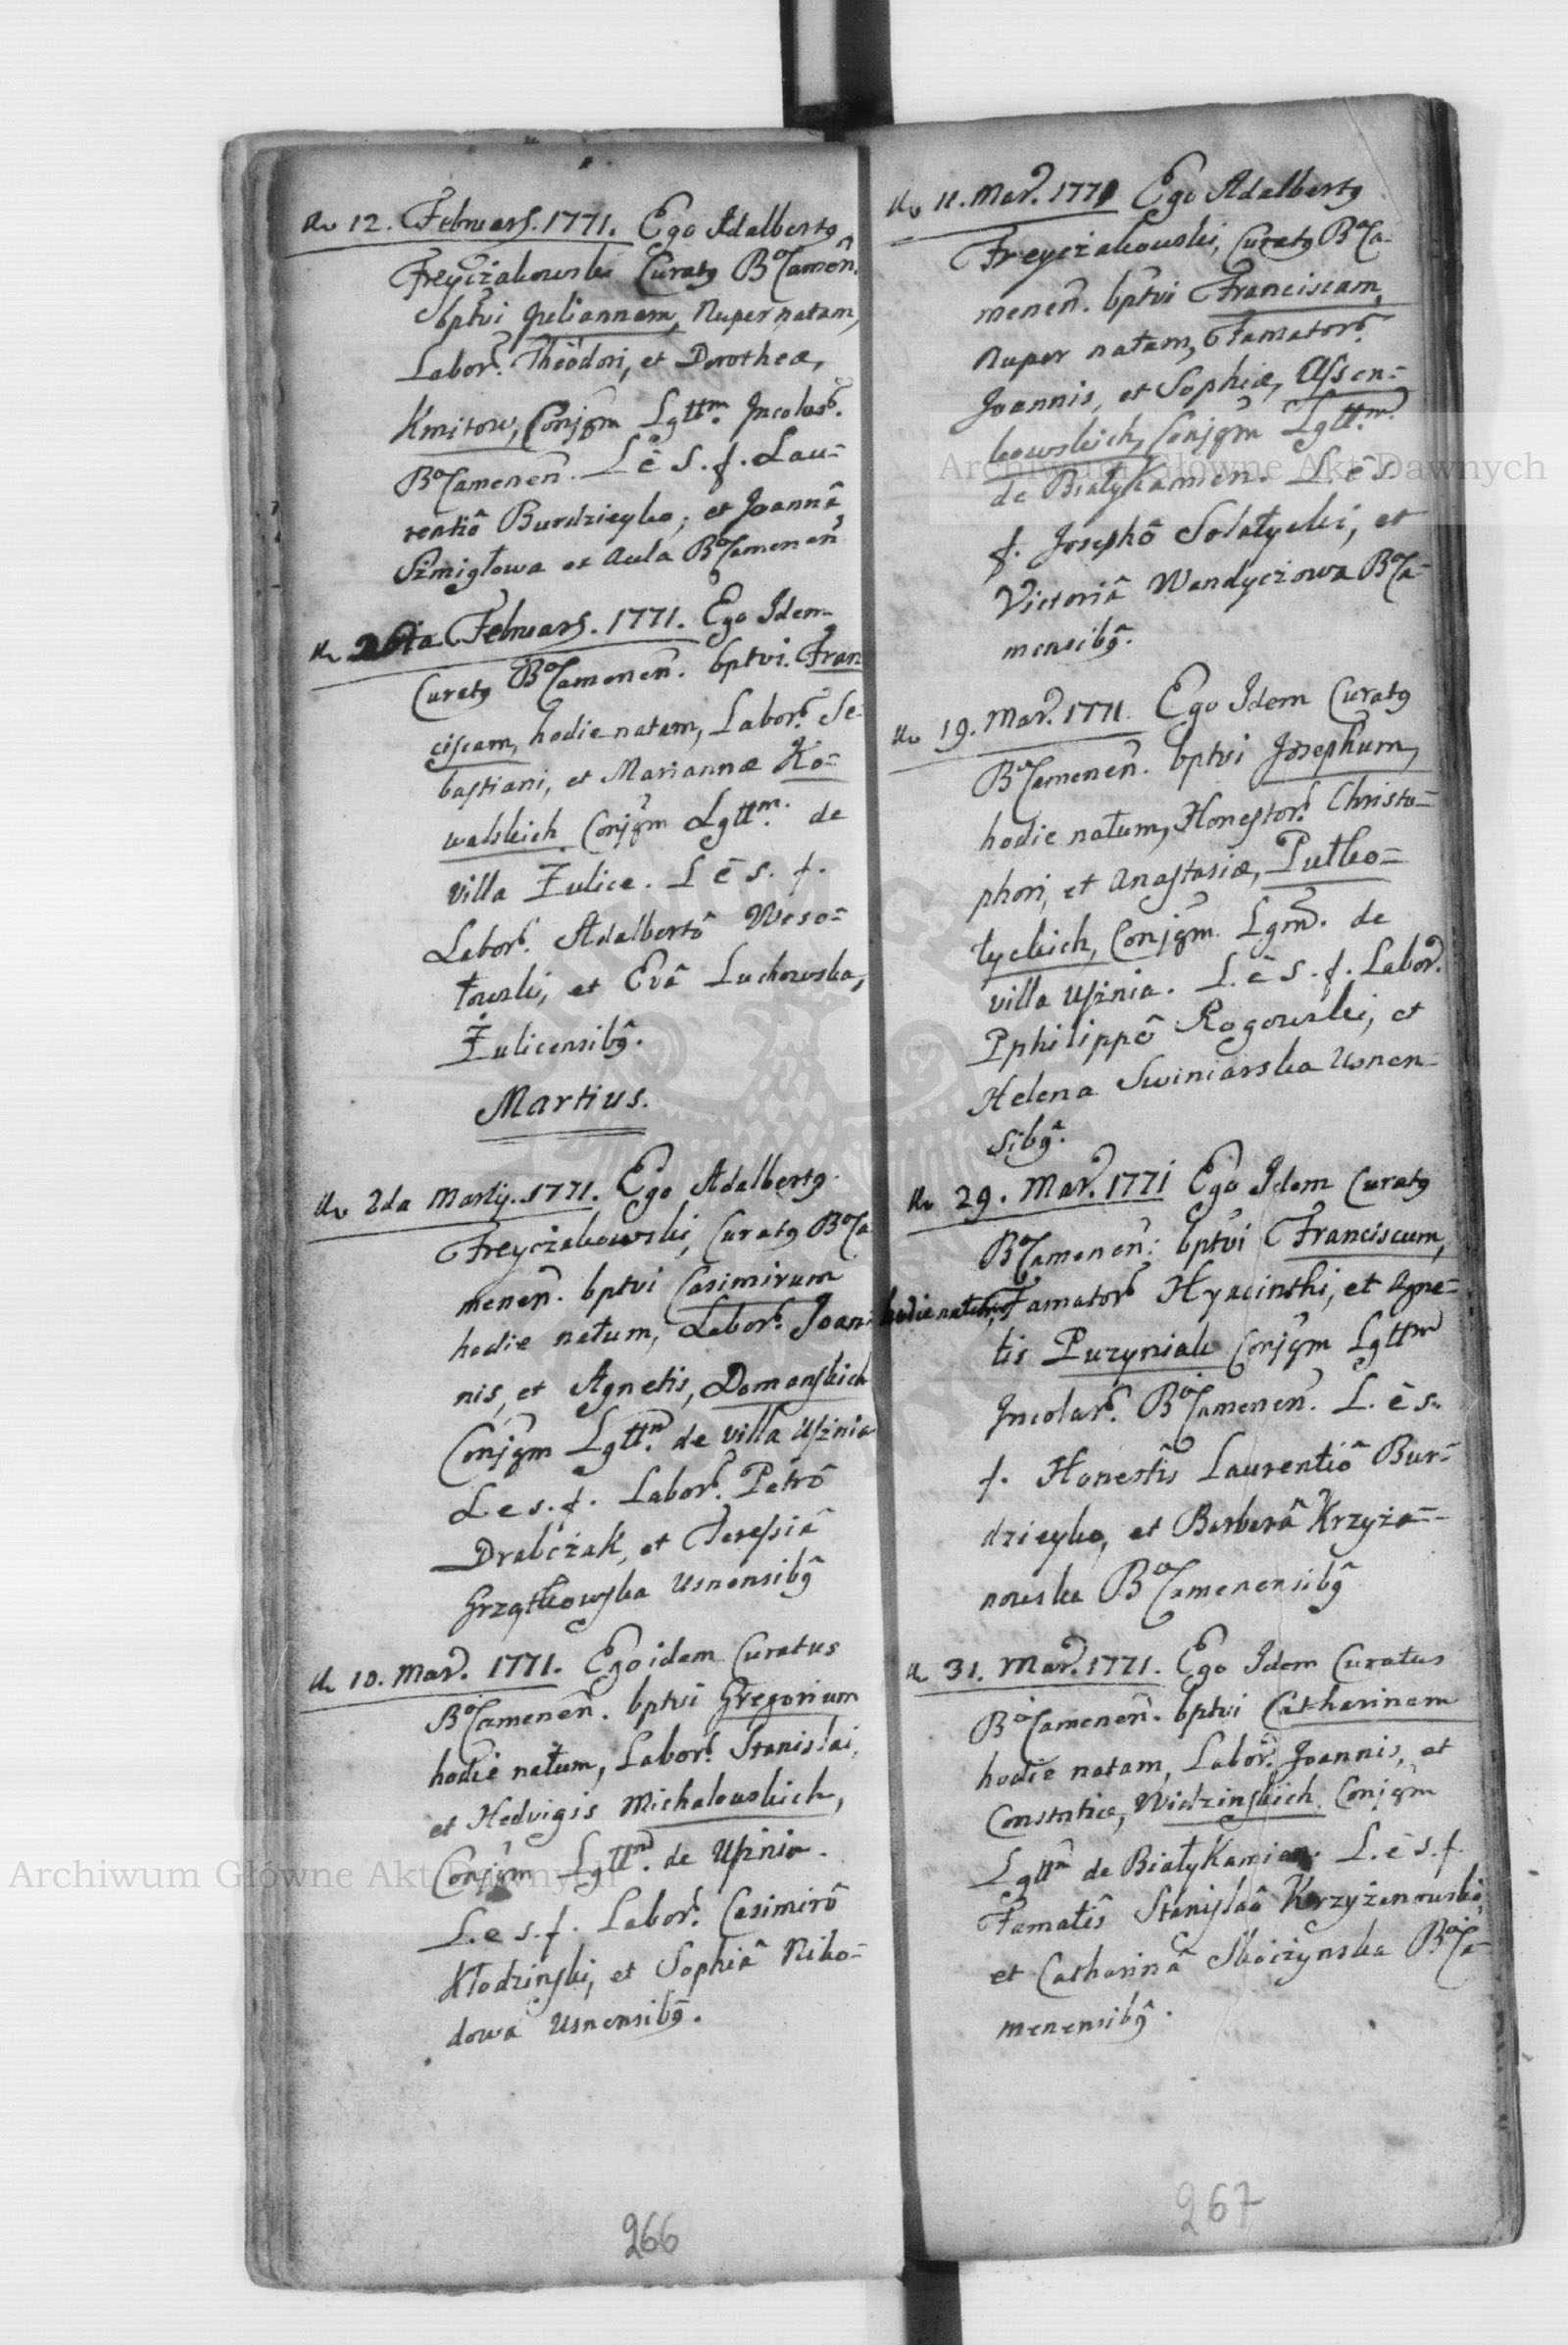 12. Februarÿ. 1771. Ego Adalbertꝯ
Freyczakowski Curatꝯ Bᵒcamen̄.
bptvi Juliannam, Nuper natam,
Labor. Theodori, et Dorotheæ,
Kmitow, Conjgm Lgttm. Incolar.
Bᵒcamenen̄. L ē S. f. Lau=
rentiô Burdzieyko, et Joannâ
Szmigłowa ex Aula Bᵒcamenen̄
26ta Februarÿ. 1771. Ego Idem
Curatꝯ Bᵒcamenen̄. bptvi. Fran
ciscam, hodie natam, Labor. Se
bastiani, et Mariannæ Ko=
walskich Conjgm Lgttm. de
Villa Żulice. L ē S. f.
Labor. Adalbertô Weso=
łowski, et Evâ Luchowska,
Żulicensibꝯ.
Martius.
2da Martÿ. 1771. Ego Adalbertꝯ
Freyczakowski, Curatꝯ Bᵒca
menen̄. bptvi Casimirum
hodie natum, Labor. Joan=
nis, et Agnetis, Domanskich
Conjgm Lgttm. de villa Usznia
L e s. f. Labor. Petrô
Drabczak, et Teressiâ
Grzątkowska Usnensibꝯ
10. Mar. 1771. Ego idem Curatus
Bᵒcamenen̄. bptvi Gregorium
hodie natum, Labor. Stanislai,
et Hedvigis Michalowskich,
Conjgm Lgttm. de Usznia.
L. e s. f. Labor. Casimirô
Kłodzinski, et Sophiâ Niko=
dowa Usnensibꝯ.
266
11. Mar. 1771 Ego Adalbertꝯ
Freyczakowski, Curatꝯ Bᵒca-
menen̄. bptvi Franciscam,
Nuper natam, Famator.
Joannis, et Sophiæ, Assen=
kowskich, Conjgm Lgttm.
de Białykamien. L. ē S.
f. Josephô Solatycki, et
Victoriâ Wendyczowa Bᵒca-
mensibꝯ.
19. Mar. 1771 Ego Idem Curatꝯ
Bᵒcamenen̄. bptvi Josephum,
hodie natum, Honestor. Christo=
phori, et Anastasiæ, Putko=
łyckich, Conjgm Lgm. de
villa Usznia. L. ē S. f. Labor.
Pphilippô Rogowski, et
Helena Swiniarska Usnen=
sibꝯ.
29. Mar. 1771 Ego Idem Curatꝯ
Bᵒcamenen̄. bptvi Franciscum,
hodie natum, Famator. Hyacinthi, et Agne=
tis Puzyniak Conjgm Lgttm
Incolar. Bᵒcamenen̄. L. ē s.
f. Honestis Laurentiô Bur=
dzieyko, et Barbarâ Krzyża=
nowska Bᵒcamenensibꝯ
31. Mar. 1771. Ego Idem Curatus
Bᵒcamenen̄. bptvi Catharinam
hodie natam, Labor. Joannis, et
Constntiæ, Widzinskich Conjgm
Lgttm de Białykamien. L. ē s. f.
Famatis Stanislaô Krzyżanowski,
et Catharinâ Skoczynska Bᵒca=
menensibꝯ.
267
Archiwum Główne Akt Dawnych
Archiwum Główne Akt Dawnych